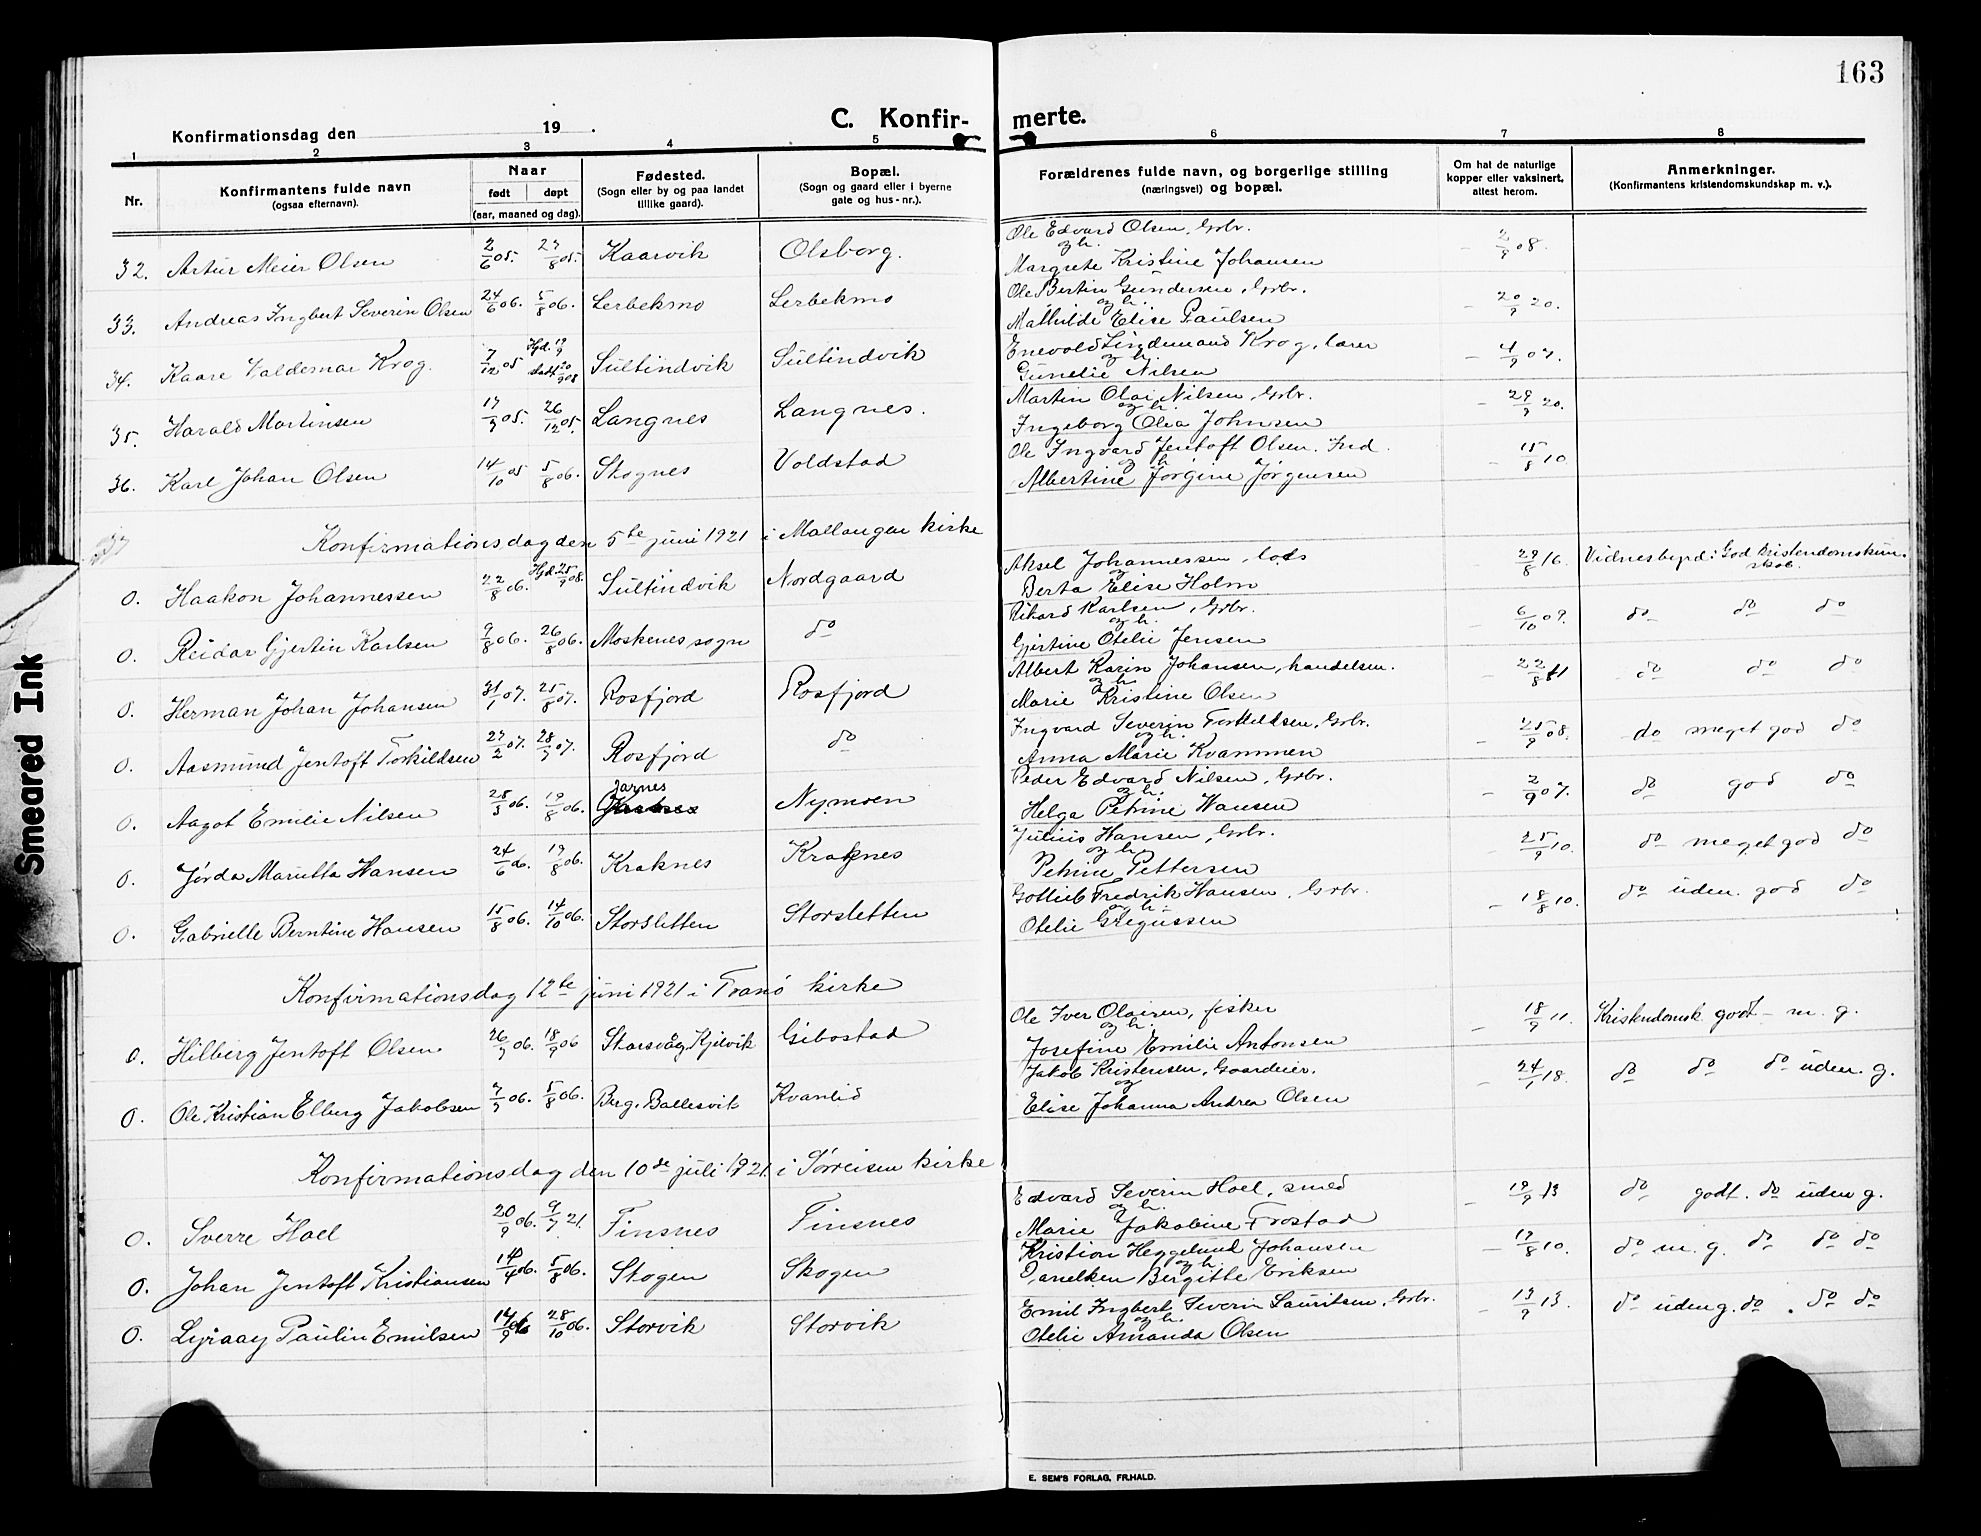 163
C. Konfir-merte.
Konfirmationsdag den 19 .
1 2 3 4 5 6 7 8
Nr. Konfirmantens fulde navn (ogsaa efternavn). Naar født døpt (aar, maaned og dag). Fødested. (Sogn eller by og paa landet tillike gaard). Bopæl. (Sogn og gaard eller i byerne gate og hus-nr.). Forældrenes fulde navn, og borgerlige stilling (næringsvei) og bopæl. Om hat de naturlige kopper eller vaksinert, attest herom. Anmerkninger. (Konfirmantens kristendomskundskap m. v.).
Ole Edvard Olsen, Grbr.
32. Artur Meier Olsen 2/6 05. 27/8 05. Kaarvik Olsborg. og h. – 2/9 08.
Margrete Kristine Johansen
Ole Bertin Gundersen, Grbr.
33. Andreas Ingbert Severin Olsen 24/6 06. 5/8 06. Lerbekmo Lerbekmo og h. – 20/9 20.
Mathilde Elise Paulsen
Enevold Lindemand Krog, lærer
34. Kaare Valdemar Krog. 7/12 05 Hjd. 19/9 stadf. 20/9 08 Sultindvik Sultindvik og h. – 4/9 07.
Gunelie Nilsen
Martin Olai Nilsen, Grbr.
35. Harald Martinsen 17/9 05. 26/12 05. Langnes Langnes. og h. – 29/9 20.
Ingeborg Olia Johnsen
Ole Ingvard Jentoft Olsen. Ind.
36. Karl Johan Olsen 14/10 05 5/8 06. Skognes Voldstad og h. – 15/8 10
Albertine Jørgine Jørgensen
37
Konfirmationsdag den 5te juni 1921 i Mallangen kirke
Aksel Johannessen, lods
0. Haakon Johannessen 22/8 06. Hjd. 25/9 08. Sultindvik Nordgaard og – 29/8 16. Vidnesbyrd: God kristendomskun. skab.
Berta Elise Holm
Rikard Karlsen, Grbr.
0. Reidar Gjertin Karlsen 9/8 06. 26/8 06. Moskenes sogn do og h. – 6/10 09. do do do
Gjertine Otelie Jensen
Albert Karin Johansen, handelsm.
0. Herman Johan Johansen 31/1 07. 25/8 07. Rosfjord Rosfjord og h. – 22/8 11 do do do
Marie Kristine Olsen
Ingvard Severin Torkildsen, Grbr.
0. Aasmund Jentoft Torkildsen 27/2 07. 28/7 07. Rosfjord do og h. – 25/9 08. do meget god do
Anna Marie Kvammen
Peder Edvard Nilsen, Grbr.
0. Aagot Emilie Nilsen 28/3 06. 19/8 06. Jarnes Nymoen og h. – 2/9 07. do god do
Helga Petrine Hansen
Julius Hansen, Grbr.
0. Jørda Marietta Hansen 24/6 06. 19/8 06. Kraknes Kraknes og h. – 25/9 10. do meget god do
Petrine Pettersen
Gottlieb Fredrik Hansen, Grbr.
0. Gabrielle Berntine Hansen 15/8 06. 14/10 06. Storsletten Storsletten og h. – 18/8 10. do uden. god do
Otelie Gregussen
Konfirmationsdag 12te juni 1921 i Tranö kirke
Ole Iver Olaisen, fisker
0. Hilberg Jentoft Olsen 26/7 06. 18/9 06 Storsvåg, Kjilvik Gibostad og h. – 18/9 11. Kristendomsk. godt – m. g.
Josefine Emilie Antonsen
Jakob Kristensen, Gaardeier.
0. Ole Kristian Elberg Jakobsen 7/7 06. 5/8 06. Berg. Ballesvik Kvanlid og – 24/1 18. do do do uden. g.
Elise Johanna Andrea Olsen
Konfirmationsdag den 10de juli 1921. i Sørreisen kirke
Edvard Severin Hoel, smed
0. Sverre Hoel 20/9 06. 9/7 21. Finsnes Finsnes og h. – 19/9 13 do godt. do uden g.
Marie Jakobine Frostad
Kristian Heggelund Johansen
0. Johan Jentoft Kristiansen 14/4 06. 5/8 06. Skogen Skogen og h. – 17/8 10. do m. g. do do do
Danelken Bergitte Eriksen
Emil Ingbert Severin Lauritsen, Grbr.
0. Lyraay Paulin Emilsen 14/9 06 28/10 06. Storvik Storvik og h. – 13/9 13. do uden g. do . do do
Otelie Amanda Olsen
E. SEM'S FORLAG, FR.HALD.
Smeared Ink